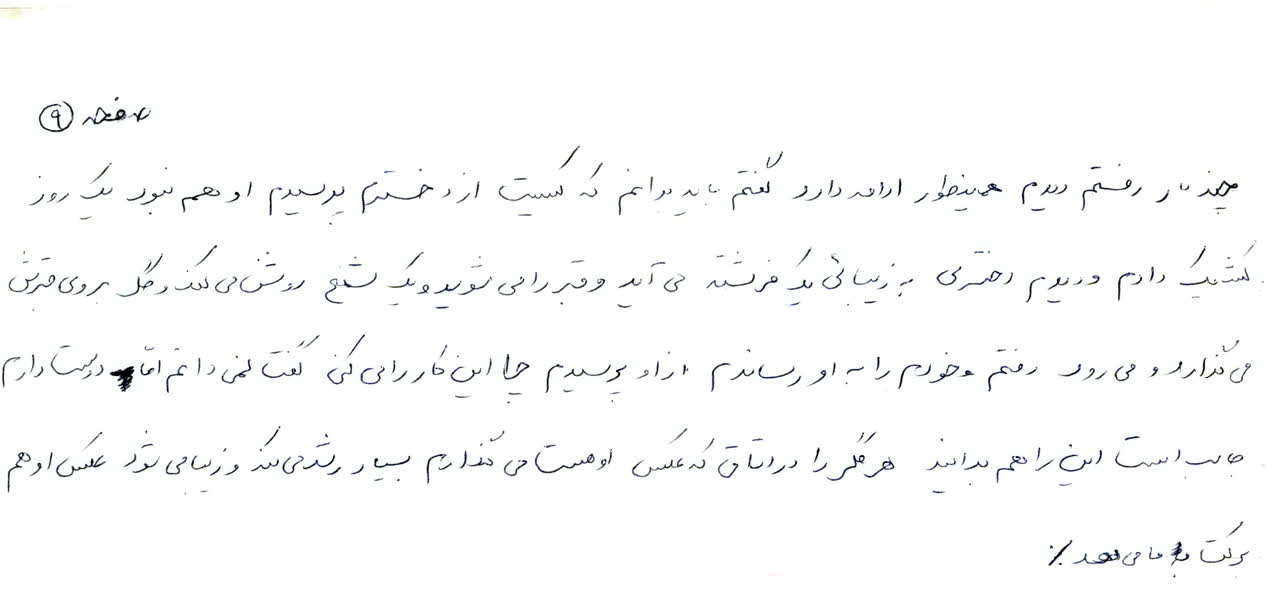 صفحه ۹
چند بار رفتم دیدم همینطور ادامه دارد گفتم باید بدانم که کیست از دخترم پرسیدم او هم نبود یک روز
کشیک دادم و دیدم دختری به زیبائی یک فرشته می آید و قبر را می شوید و یک شمع روشن می کند و گل بروی قبرش
می گذارد و می رود رفتم و خودم را به او رساندم از او پرسیدم چرا این کار را می کنی گفت نمی دانم اما دوست دارم
جالب است این را هم بدانید هر گلی را در اتاقی که عکس او هست می گذارم بسیار رشد می کند و زیبا می شود عکس او هم
برکت به ما می دهد ./